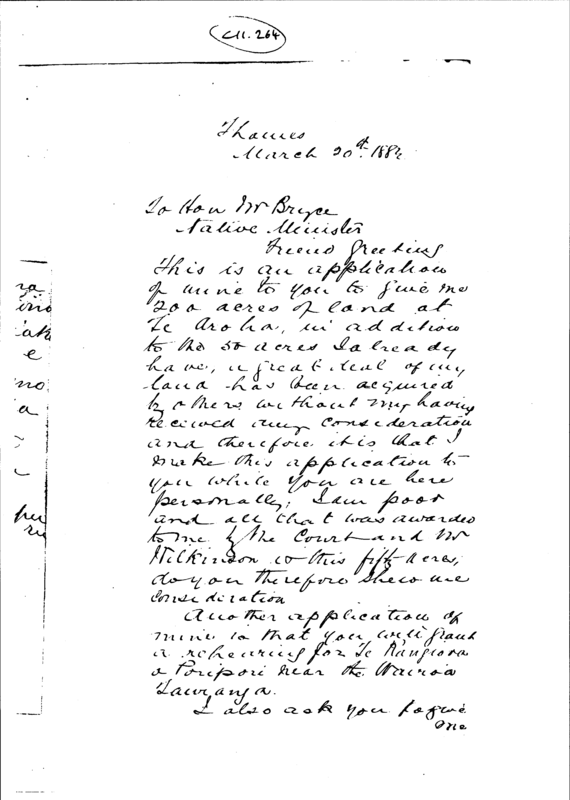 C11.264
Thames
March 20th 188
To Hon Mr Bryce
Native Minister
Friend Greeting
This is an application
of mine to you to give me
200 acres of land at
Te Aroha, in addition
to the 50 acres I already
have, a great deal of my
land has been acquired
by others without my having
received any consideration
and therefore it is that I
make this application to
you while you are here
personally, I am poor
and all that was awarded
to me by the Court and Mr
Wilkinson is this fifty acres,
do you therefore shew me
consideration
Another application of
mine is that you will grant
a rehearing for Te Rangiora
o Poripori near the Wairoa
Tauranga.
I also ask you to give
me
e
no
a